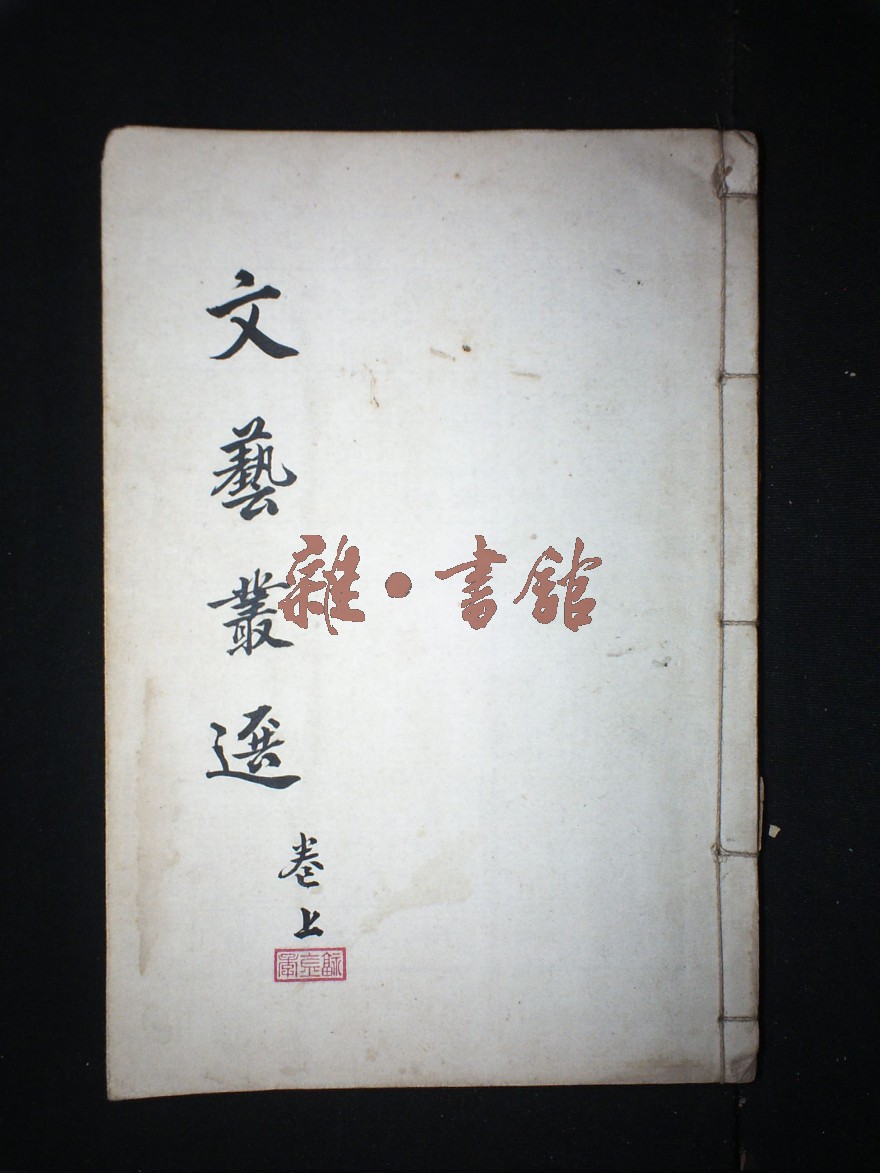 文藝叢選
卷上
雜·書館